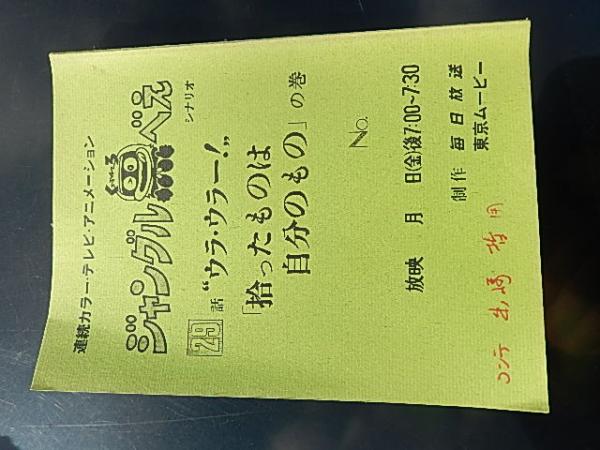 連続カラー・テレビ・アニメーション
ジャングル
くろべえ
シナリオ
29話 “ウラ・ウラー!”
「拾ったものは
自分のもの」の巻
No.
放映 月 日(金)後7:00~7:30
制作 毎日放送
東京ムービー
コンテ 出崎 哲用